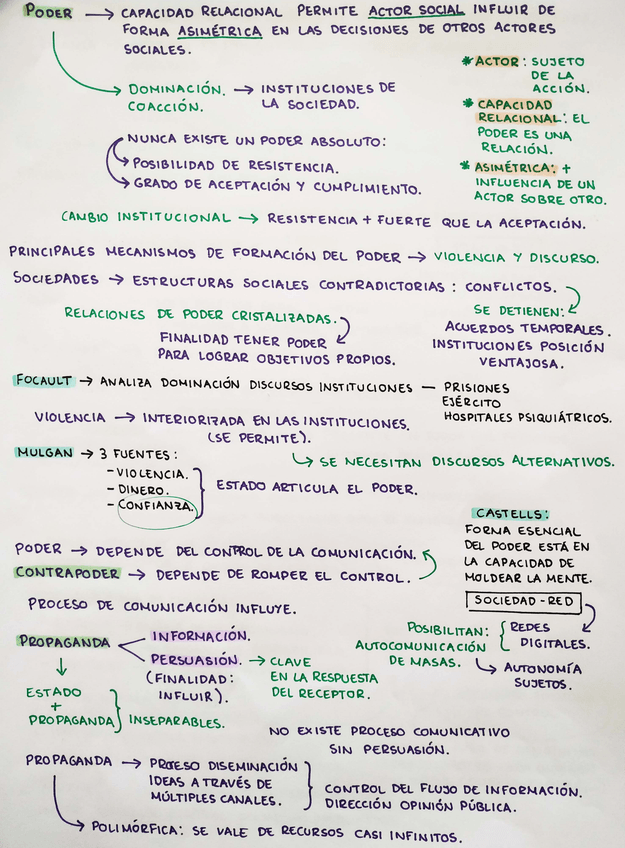 PODER → CAPACIDAD RELACIONAL PERMITE ACTOR SOCIAL INFLUIR DE
FORMA ASIMÉTRICA EN LAS DECISIONES DE OTROS ACTORES
SOCIALES.
DOMINACIÓN. → INSTITUCIONES DE
COACCIÓN. LA SOCIEDAD.
* ACTOR: SUJETO
DE LA
ACCIÓN.
* CAPACIDAD
RELACIONAL: EL
PODER ES UNA
RELACIÓN.
* ASIMÉTRICA: +
INFLUENCIA DE UN
ACTOR SOBRE OTRO.
NUNCA EXISTE UN PODER ABSOLUTO:
→ POSIBILIDAD DE RESISTENCIA.
→ GRADO DE ACEPTACIÓN Y CUMPLIMIENTO.
CAMBIO INSTITUCIONAL → RESISTENCIA + FUERTE QUE LA ACEPTACIÓN.
PRINCIPALES MECANISMOS DE FORMACIÓN DEL PODER → VIOLENCIA Y DISCURSO.
SOCIEDADES → ESTRUCTURAS SOCIALES CONTRADICTORIAS: CONFLICTOS.
SE DETIENEN:
ACUERDOS TEMPORALES.
INSTITUCIONES POSICIÓN
VENTAJOSA.
RELACIONES DE PODER CRISTALIZADAS.
FINALIDAD TENER PODER
PARA LOGRAR OBJETIVOS PROPIOS.
FOCAULT → ANALIZA DOMINACIÓN DISCURSOS INSTITUCIONES — PRISIONES
EJÉRCITO
HOSPITALES PSIQUIÁTRICOS.
VIOLENCIA → INTERIORIZADA EN LAS INSTITUCIONES.
(SE PERMITE).
→ SE NECESITAN DISCURSOS ALTERNATIVOS.
MULGAN → 3 FUENTES:
- VIOLENCIA.
- DINERO.
- CONFIANZA.
ESTADO ARTICULA EL PODER.
CASTELLS:
FORMA ESENCIAL
DEL PODER ESTÁ EN
LA CAPACIDAD DE
MOLDEAR LA MENTE.
SOCIEDAD-RED
REDES
DIGITALES.
POSIBILITAN:
AUTOCOMUNICACIÓN
DE MASAS.
→ AUTONOMÍA
SUJETOS.
PODER → DEPENDE DEL CONTROL DE LA COMUNICACIÓN.
CONTRAPODER → DEPENDE DE ROMPER EL CONTROL.
PROCESO DE COMUNICACIÓN INFLUYE.
PROPAGANDA
INFORMACIÓN.
PERSUASIÓN. → CLAVE
(FINALIDAD: EN LA RESPUESTA
INFLUIR). DEL RECEPTOR.
ESTADO
+
PROPAGANDA
INSEPARABLES.
NO EXISTE PROCESO COMUNICATIVO
SIN PERSUASIÓN.
PROPAGANDA → PROCESO DISEMINACIÓN
IDEAS A TRAVÉS DE
MÚLTIPLES CANALES.
CONTROL DEL FLUJO DE INFORMACIÓN.
DIRECCIÓN OPINIÓN PÚBLICA.
→ POLIMÓRFICA: SE VALE DE RECURSOS CASI INFINITOS.